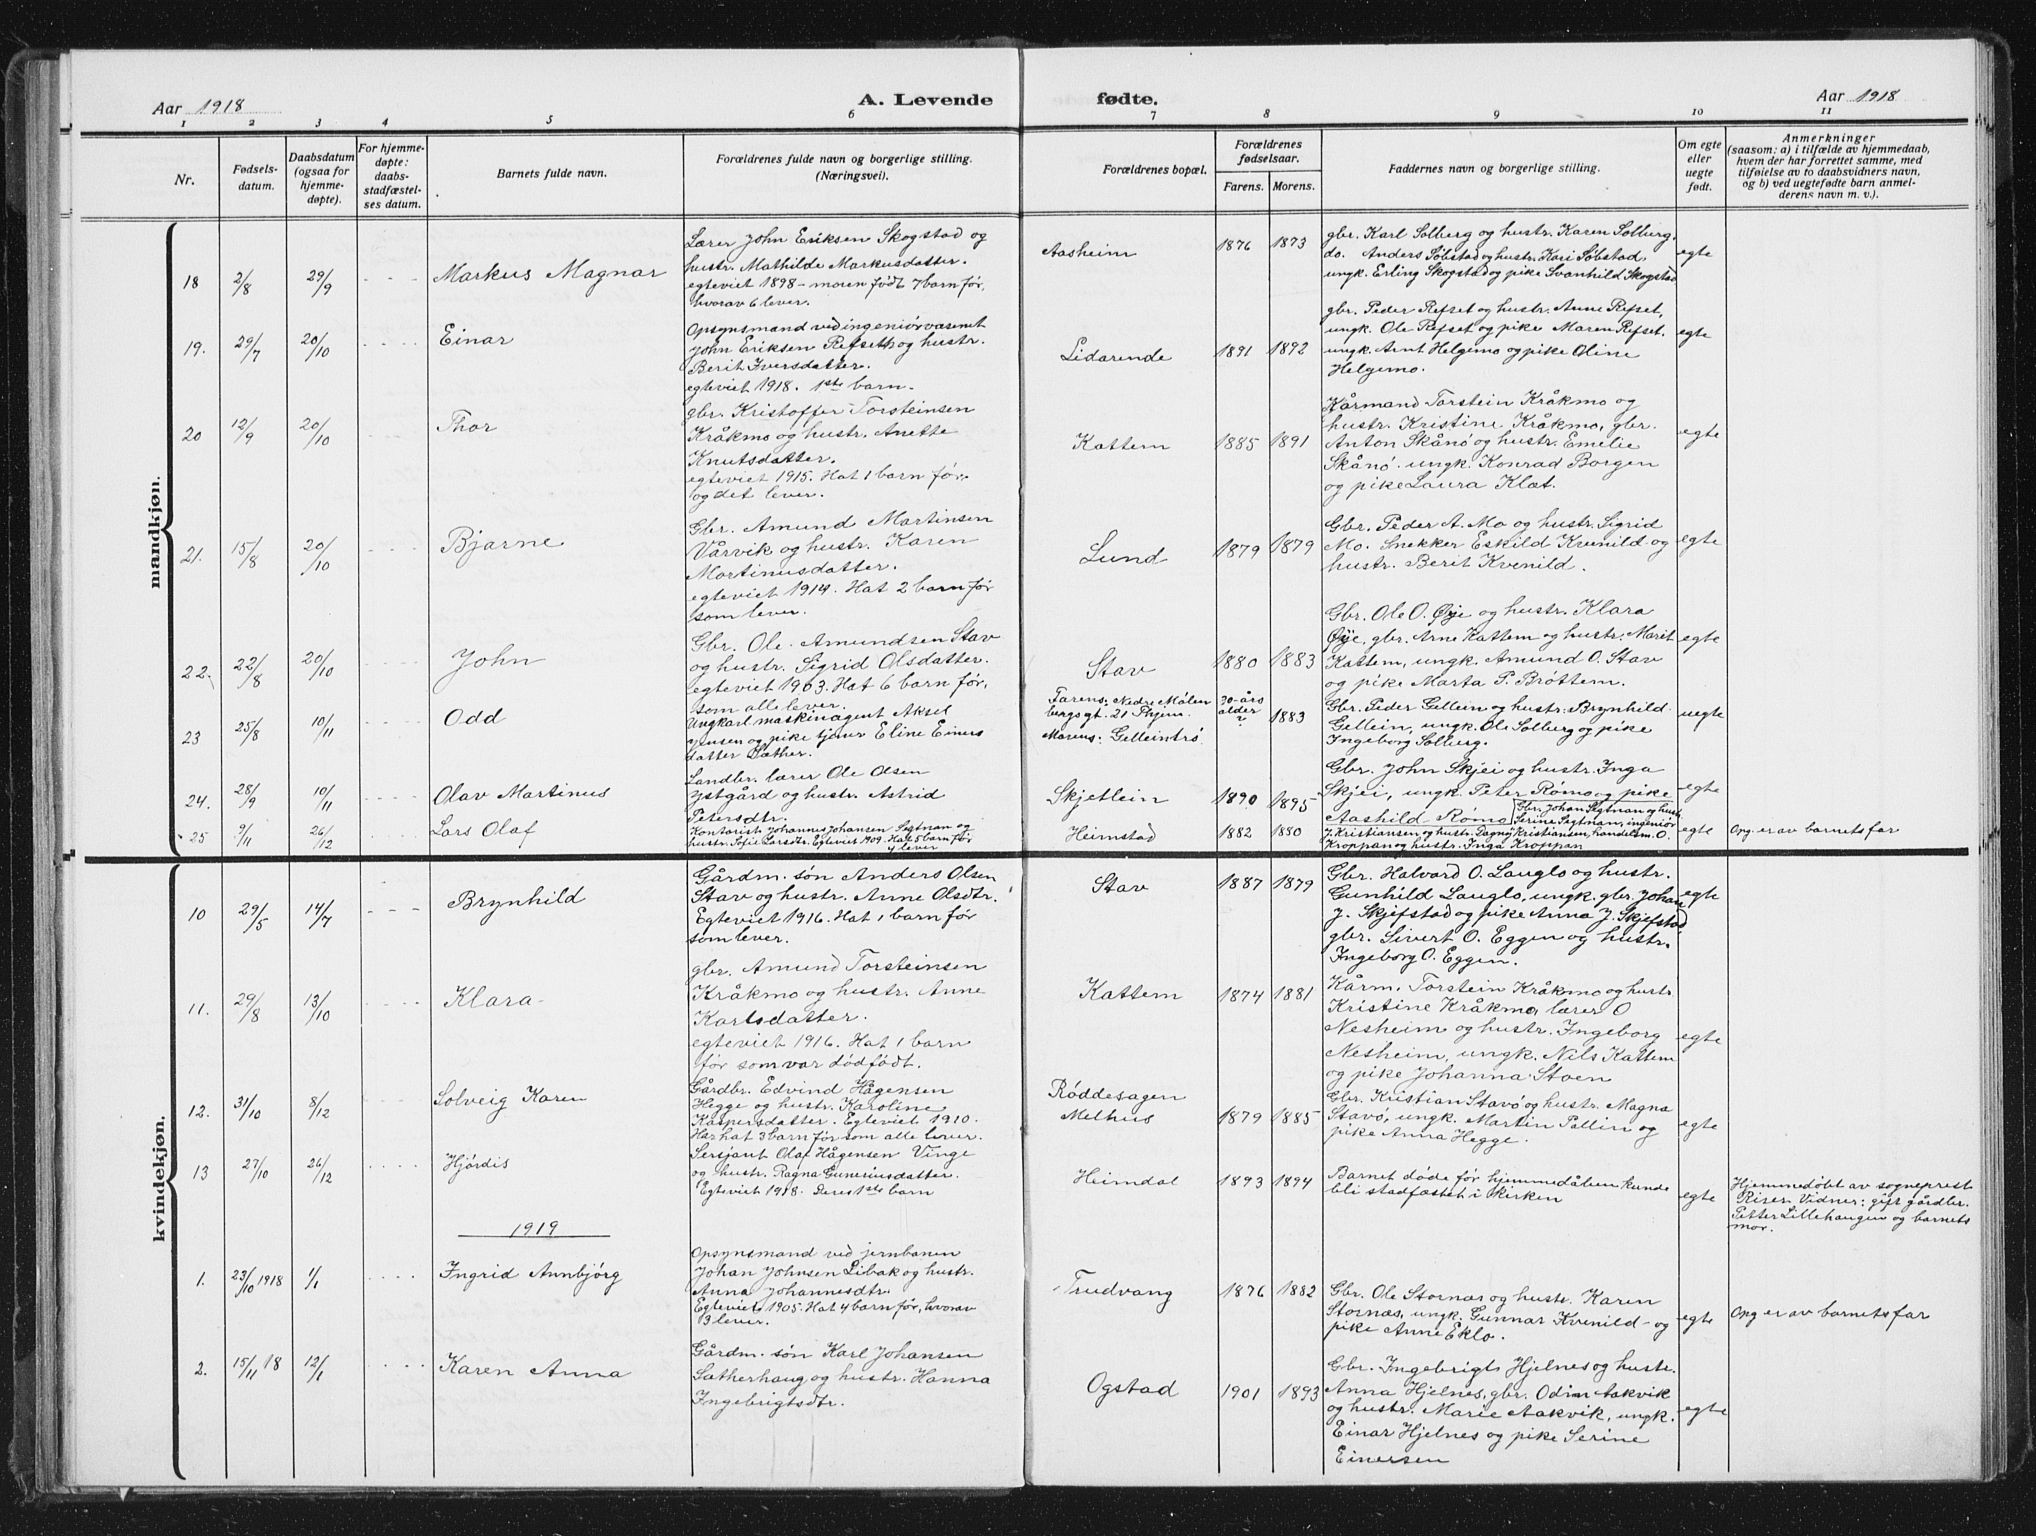 Aar 1918
A. Levende
fødte.
Aar 1918
1 2 3 4 5 6 7 8 9 10 11
Nr.
Fødsels-
datum.
Daabsdatum
(ogsaa for
hjemme-
døpte).
For hjemme-
døpte:
daabs-
stadfæstel-
ses datum.
Barnets fulde navn.
Forældrenes fulde navn og borgerlige stilling.
(Næringsvei).
Forældrenes bopæl.
Forældrenes
fødselsaar.
Farens. Morens.
Faddernes navn og borgerlige stilling.
Om egte
eller
uegte
født.
Anmerkninger
(saasom: a) i tilfælde av hjemmedaab,
hvem der har forrettet samme, med
tilføielse av to daabsvidners navn,
og b) ved uegtefødte barn anmel-
derens navn m. v.).
mandkjøn.
18 2/8 29/9
Markus Magnar
Lærer John Eriksen Skogstad og
hustr. Mathilde Markusdatter.
egteviet 1898 - moren født 7 barn før,
hvorav 6 lever.
Aasheim
1876 1873
gbr. Karl Solberg og hustr. Karen Solberg,
do. Anders Søbstad og hustr. Kari Søbstad,
ungk. Erling Skogstad og pike Svanhild Skogstad
egte
19. 29/7 20/10
Einar
Opsynsmand ved ingeniørvæsenet
John Eriksen Refseth og hustr.
Berit Iversdatter.
egteviet 1918. 1ste barn.
Lidarende
1891 1892
gbr. Peder Refset og hustr. Anne Refset,
ungk. Ole Refset og pike Maren Refset.
ungk. Arnt Helgemo og pike Oline
Helgemo.
egte
20 12/9 20/10
Thor
gbr. Kristoffer Torsteinsen
Kråkmo og hustr. Anette
Knutsdatter.
egteviet 1915. Hat 1 barn før.
og det lever.
Kattem
1885 1891
Kårmand Torstein Kråkmo og
hustr. Kristine Kråkmo, gbr.
Anton Skånø og hustr. Emelie
Skånø. ungk. Konrad Borgen
og pike Laura Klæt.
egte
21. 15/8 20/10
Bjarne
Gbr. Amund Martinsen
Vårvik og hustr. Karen
Martinusdatter.
egteviet 1914. Hat 2 barn før
som lever.
Lund
1879 1879
Gbr. Peder A. Mo og hustr. Sigrid
Mo. Snekker Eskild Kvenild og
hustr. Berit Kvenild.
egte
22. 22/8 20/10
John
Gbr. Ole Amundsen Stav
og hustr. Sigrid Olsdatter.
egteviet 1903. Hat 6 barn før,
som alle lever.
Stav
1880 1883
Gbr. Ole O. Øye og hustr. Klara
Øye, gbr. Arne Kattem og hustr. Marit
Kattem, ungk. Amund O. Stav
og pike Marta P. Brøttem.
egte
23 25/8 10/11
Odd
Ungkarl maskinagent Aksel
Jensen og pike tjener Eline Einers
datter Sæther.
Farens: Nedre Mølen
bergsgt. 21 Thjem.
Morens: Gelleintrø
30-års
alder
?
1883
Gbr. Peder Gellein og hustr. Brynhild
Gellein, ungk. Ole Solberg og pike
Ingeborg Solberg.
uegte
24. 28/9 10/11
Olav Martinus
Landbr. lærer Ole Olsen
Ystgård og hustr. Astrid
Petersdtr.
Skjetlein
1890 1895
Gbr. John Skjei og hustr. Inga
Skjei, ungk. Peter Rømo og pike
Aashild Rømo
egte
25 9/11 26/12
Lars Olaf
Kontorist Johannes Johansen Segtnan og
hustr. Sofie Larsdtr. Egteviet 1909. Hat 5 barn før
4 lever
Heimstad
1882 1880
Gbr. Johan Segtnan og hustr.
Serine Segtnan, ingeniør
J. Kristiansen og hustr. Dagny Kristiansen, handelsm. O.
Kroppan og hustr. Inga Kroppan
egte
Opg. er av barnets far
kvindekjøn.
10 29/5 14/7
Brynhild
Gårdm. søn Anders Olsen
Stav og hustr. Anne Olsdtr.
Egteviet 1916. Hat 1 barn før
som lever.
Stav
1887 1879
Gbr. Halvard O. Lauglo og hustr.
Gunhild Lauglo, ungk. gbr. Johan
J. Skjefstad og pike Anna J. Skjefstad
gbr. Sivert O. Eggen og hustr.
Ingeborg O. Eggen.
egte
11. 29/8 13/10
Klara
gbr. Amund Torsteinsen
Kråkmo og hustr. Anne
Karlsdatter.
egteviet 1916. Hat 1 barn
før som var dødfødt.
Kattem
1874 1881
Kårm. Torstein Kråkmo og hustr.
Kristine Kråkmo, lærer O
Nesheim og hustr. Ingeborg
Nesheim, ungk. Nils Kattem
og pike Johanna Stoen
egte
12. 31/10 8/12
Solveig Karen
Gårdbr. Edvind Hågensen
Hegge og hustr. Karoline
Kaspersdatter. Egteviet 1910.
Har hat 3 barn før som alle lever.
Røddesagen
Melhus
1879 1885
Gbr. Kristian Stavø og hustr. Magna
Stavø, ungk. Martin Pallin og
pike Anna Hegge.
egte
13 27/10 26/12
Hjørdis
Sersjant Olaf Hågensen Vinge
og hustr. Ragna Guneriusdatter.
Egteviet 1918. Deres 1ste barn
Heimdal
1893 1894
Barnet døde før hjemmedåben kunde
bli stadfæstet i kirken
egte
Hjemmedøbt av sogneprest
Riser. Vidner: gift gårdbr.
Petter Lillehaugen og barnets
mor.
1919
1. 23/10 1918 1/1
Ingrid Annbjørg
Opsynsmand ved jernbanen
Johan Johnsen Libak og hustr.
Anna Johannesdtr.
Egteviet 1905. Hat 4 barn før, hvorav
3 lever.
Trudvang
1876 1882
Gbr. Ole Stornæs og hustr. Karen
Stornæs, ungk. Gunnar Kvenild og
pike Anne Eklo.
egte
Opg er av barnets far
2. 15/11 18 12/1
Karen Anna
Gårdm. søn Karl Johansen
Sætherhaug og hustr. Hanna
Ingebrigtsdtr.
Ogstad
1901 1893
Gbr. Ingebrigt Hjelnes og hustr.
Anna Hjelnes, gbr. Odin Aakvik
og hustr. Marie Aakvik, ungk.
Einar Hjelnes og pike Serine
Einersen
egte